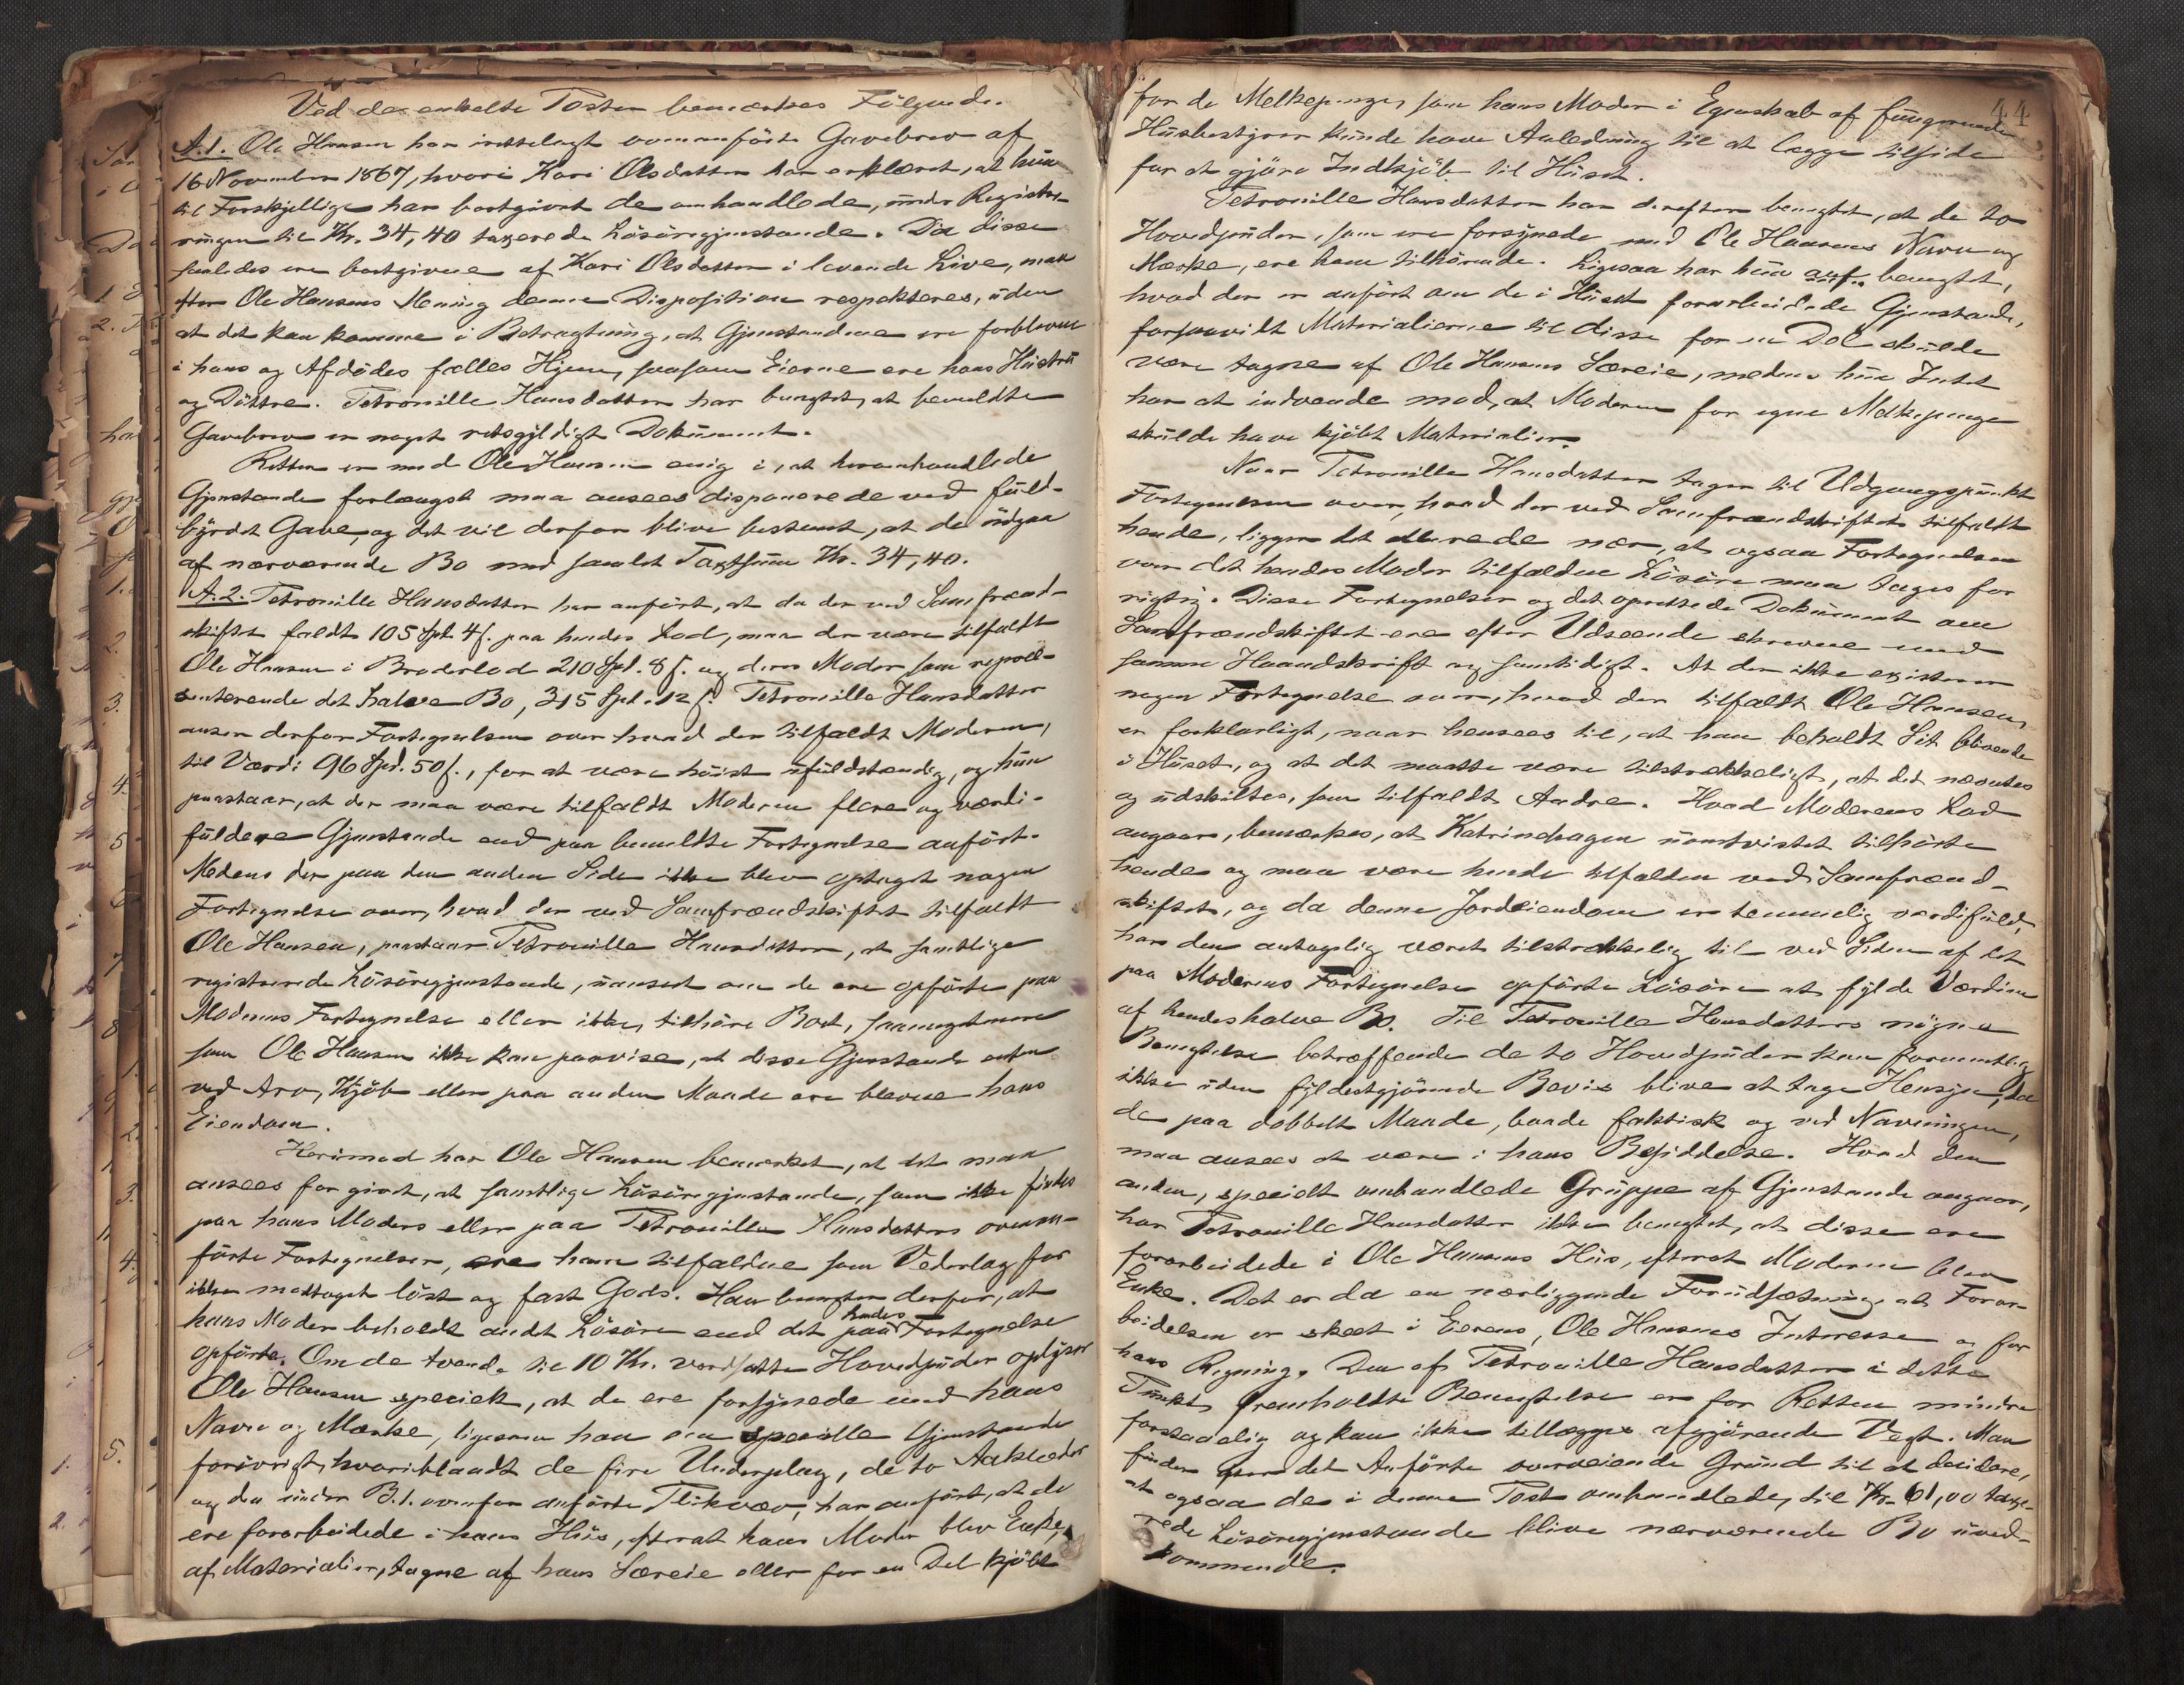 Ved de enkelte Poster bemærkes Følgende.
A.1. Ole Hansen har irettelagt ovenanførte Gavebrev af
16 November 1867, hvori Kari Olsdatter har erklæret, at hun
til Forskjellige har bortgivet de omhandlede, under Registre-
ringen til Kr. 34,40 taxerede Løsøregjenstande. Da disse
saaledes ere bortgivne af Kari Olsdatter i levende Live, maa
efter Ole Hansens Mening denne Disposition respekteres, uden
at det kan komme i Betragtning, at Gjenstandene ere forblevne
i hans og Afdødes fælles Hjem, saasom Eierne ere hans Hustru
og Døttre. Petronille Hansdatter har benegtet, at bemeldte
Gavebrev er noget retsgyldigt Dokument.
Retten er med Ole Hansen enig i, at heromhandlede
Gjenstande forlængst maa ansees disponerede ved fuld-
byrdet Gave, og det vil derfor blive bestemt, at de udgaa
af nærværende Bo med samlet Taxtsum Kr. 34,40.
A.2. Petronille Hansdatter har anført, at da der ved Samfrænd-
skiftet faldt 105 Spd. 4 s. paa hendes Lod, maa der være tilfaldt
Ole Hansen i Broderlod 210 Spd. 8 s. og deres Moder som repræ-
senterende det halve Bo, 315 Spd. 12 s. Petronille Hansdatter
anser derfor Fortegnelsen over hvad der tilfaldt Moderen,
til Værdi 96 Spd. 50 s., for at være høist ufuldstændig, og hun
paastaar, at der maa være tilfaldt Moderen flere og værdi-
fuldere Gjenstande end paa bemeldte Fortegnelse anført.
Medens der paa den anden Side ikke blev optaget nogen
Fortegnelse over, hvad der ved Samfrændskiftet tilfaldt
Ole Hansen, paastaar Petronille Hansdatter, at samtlige
registrerede Løsøregjenstande, uanseet om de ere opførte paa
Moderens Fortegnelse eller ikke, tilhøre Boet, saameget mere
som Ole Hansen ikke kan paavise, at disse Gjenstande enten
ved Arv, Kjøb eller paa anden Maade ere blevne hans
Eiendom.
Herimod har Ole Hansen bemærket, at det maa
ansees for givet, at samtlige Løsøregjenstande, som ikke findes
paa hans Moders eller paa Petronille Hansdatters ovenan-
førte Fortegnelser, ere ham tilfaldne som Vederlag for
ikke modtaget løst og fast Gods. Han benegter derfor, at
hans Moder beholdt andt Løsøre end det paa hendes Fortegnelse
opførte. Om de tvende til 10 Kr. værdsatte Hovedpuder oplyser
Ole Hansen specielt, at de ere forsynede med hans
Navn og Mærke, ligesom han om specielle Gjenstande
forøvrigt, hvoriblandt de fire Underplag, de to Aaklæder
og den under B.1. ovenfor anførte Flikvæv, har anført, at de
ere forarbeidede i hans Hus, efterat hans Moder blev Enke,
af Materialier, tagne af hans Særeie eller for en Del kjøbt
44
for de Melkepenge, som hans Moder i Egenskab af fungerende
Husbestyrer kunde have Anledning til at lægge tilside
for at gjøre Indkjøb til Huset.
Petronille Hansdatter har derefter benegtet, at de to
Hovedpuder, som ere forsynede med Ole Hansens Navn og
Mærke, ere ham tilhørende. Ligesaa har hun benegtet,
hvad der er anført om de i Huset forarbeidede Gjenstande,
forsaavidt Materialierne til disse for en Del skulde
være tagne af Ole Hansens Særeie, medens hun Intet
har at indvende mod, at Moderen for egne Melkepenge
skulde have kjøbt Materialier.
Naar Petronille Hansdatter tager til Udgangspunkt
Fortegnelsen over, hvad der ved Samfrændskiftet tilfaldt
hende, ligger det allerede nær, at ogsaa Fortegnelsen
over det hendes Moder tilfaldne Løsøre maa tages for
rigtig. Disse Fortegnelser og det oprettede Dokument om
Samfrændskiftet ere efter Udseende skrevne med
samme Haandskrift og samtidigt. At der ikke existerer
nogen Fortegnelse over, hvad der tilfaldt Ole Hansen,
er forklarligt, naar hensees til, at han beholdt Sit blivende
i Huset, og at det maatte være tilstrækkeligt, at det nævntes
og udskiltes, som tilfaldt Andre. Hvad Moderens Lod
angaar, bemærkes, at Katrinehagen uomtvistet tilhørte
hende og maa være hende tilfalden ved Samfrænd-
skiftet, og da denne Jordeiendom er temmelig værdifuld,
har den antagelig været tilstrækkelig til ved Siden af det
paa Moderens Fortegnelse opførte Løsøre at fylde Værdien
af hendes halve Bo. Til Petronille Hansdatters nøgne
Benegtelse betræffende de to Hovedpuder kan formentlig
ikke uden fyldestgjørende Bevis blive at tage Hensyn, da
de paa dobbelt Maade, baade faktisk og ved Navningen,
maa ansees at være i hans Besiddelse. Hvad den
anden, specielt omhandlede Gruppe af Gjenstande angaar,
har Petronille Hansdatter ikke benegtet, at disse ere
forarbeidede i Ole Hansens Hus, efterat Moderen blev
Enke. Det er da en nærliggende Forudsætning, at Forar-
beidelsen er skeet i Eierens, Ole Hansens Interesse og for
hans Regning. Den af Petronille Hansdatter i dette
Punkt fremholdte Benegtelse er for Retten mindre
forstaaelig og kan ikke tillægges afgjørende Vægt. Man
finder det Anførte overveiende Grund til at decidere,
at ogsaa de i denne Post omhandlede, til Kr. 61,00 taxe-
rede Løsøregjenstande blive nærværende Bo uved-
kommende.